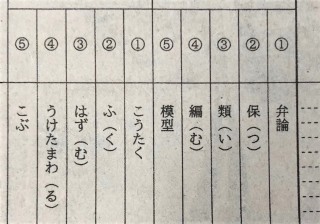 ① 弁論
② 保（つ）
③ 類（い）
④ 編（む）
⑤ 模型
① こうたく
② ふ（く）
③ はず（む）
④ うけたまわ（る）
⑤ こぶ